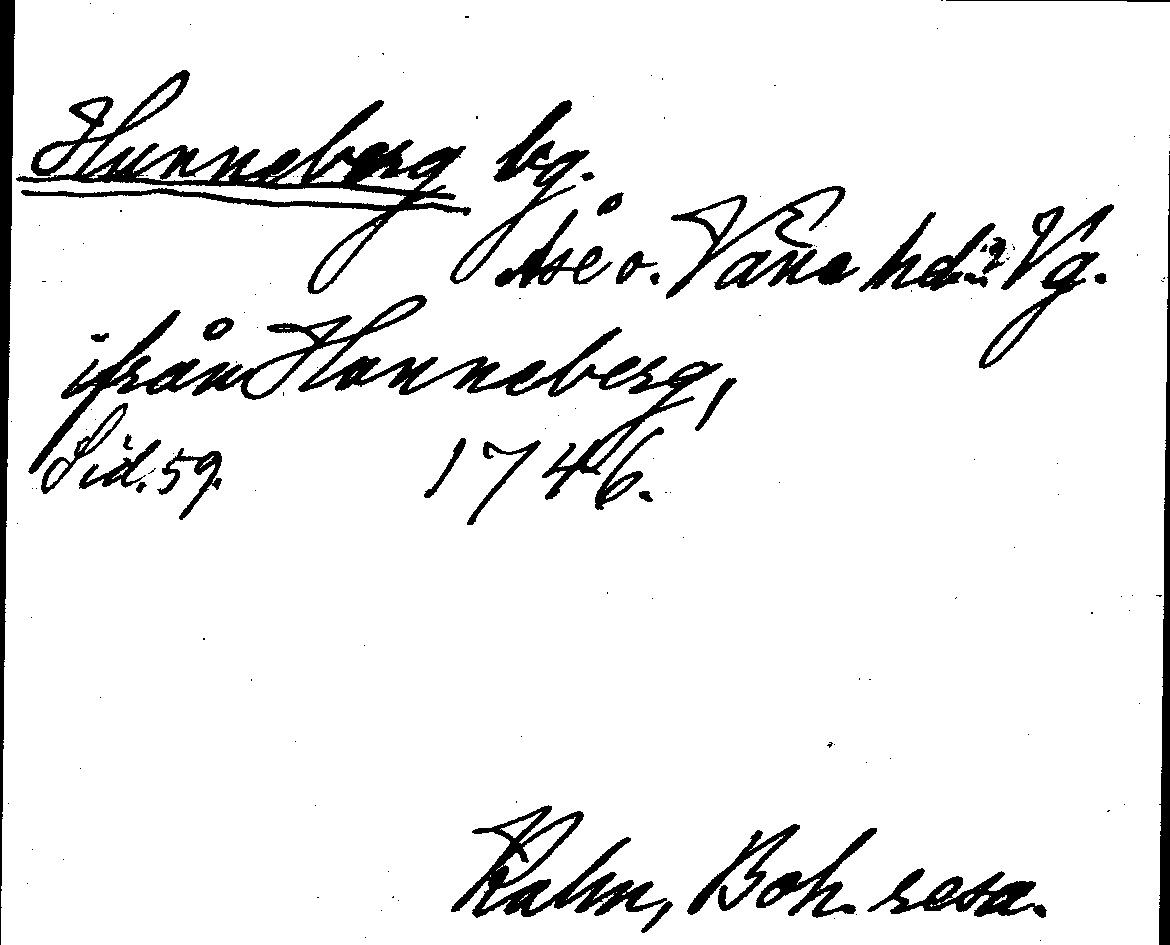 Hunneberg bg.
Åse o. Väne hd. Vg.
ifrån Hanneberg,
Sid. 59. 1746.
Kalm, Boh. resa.